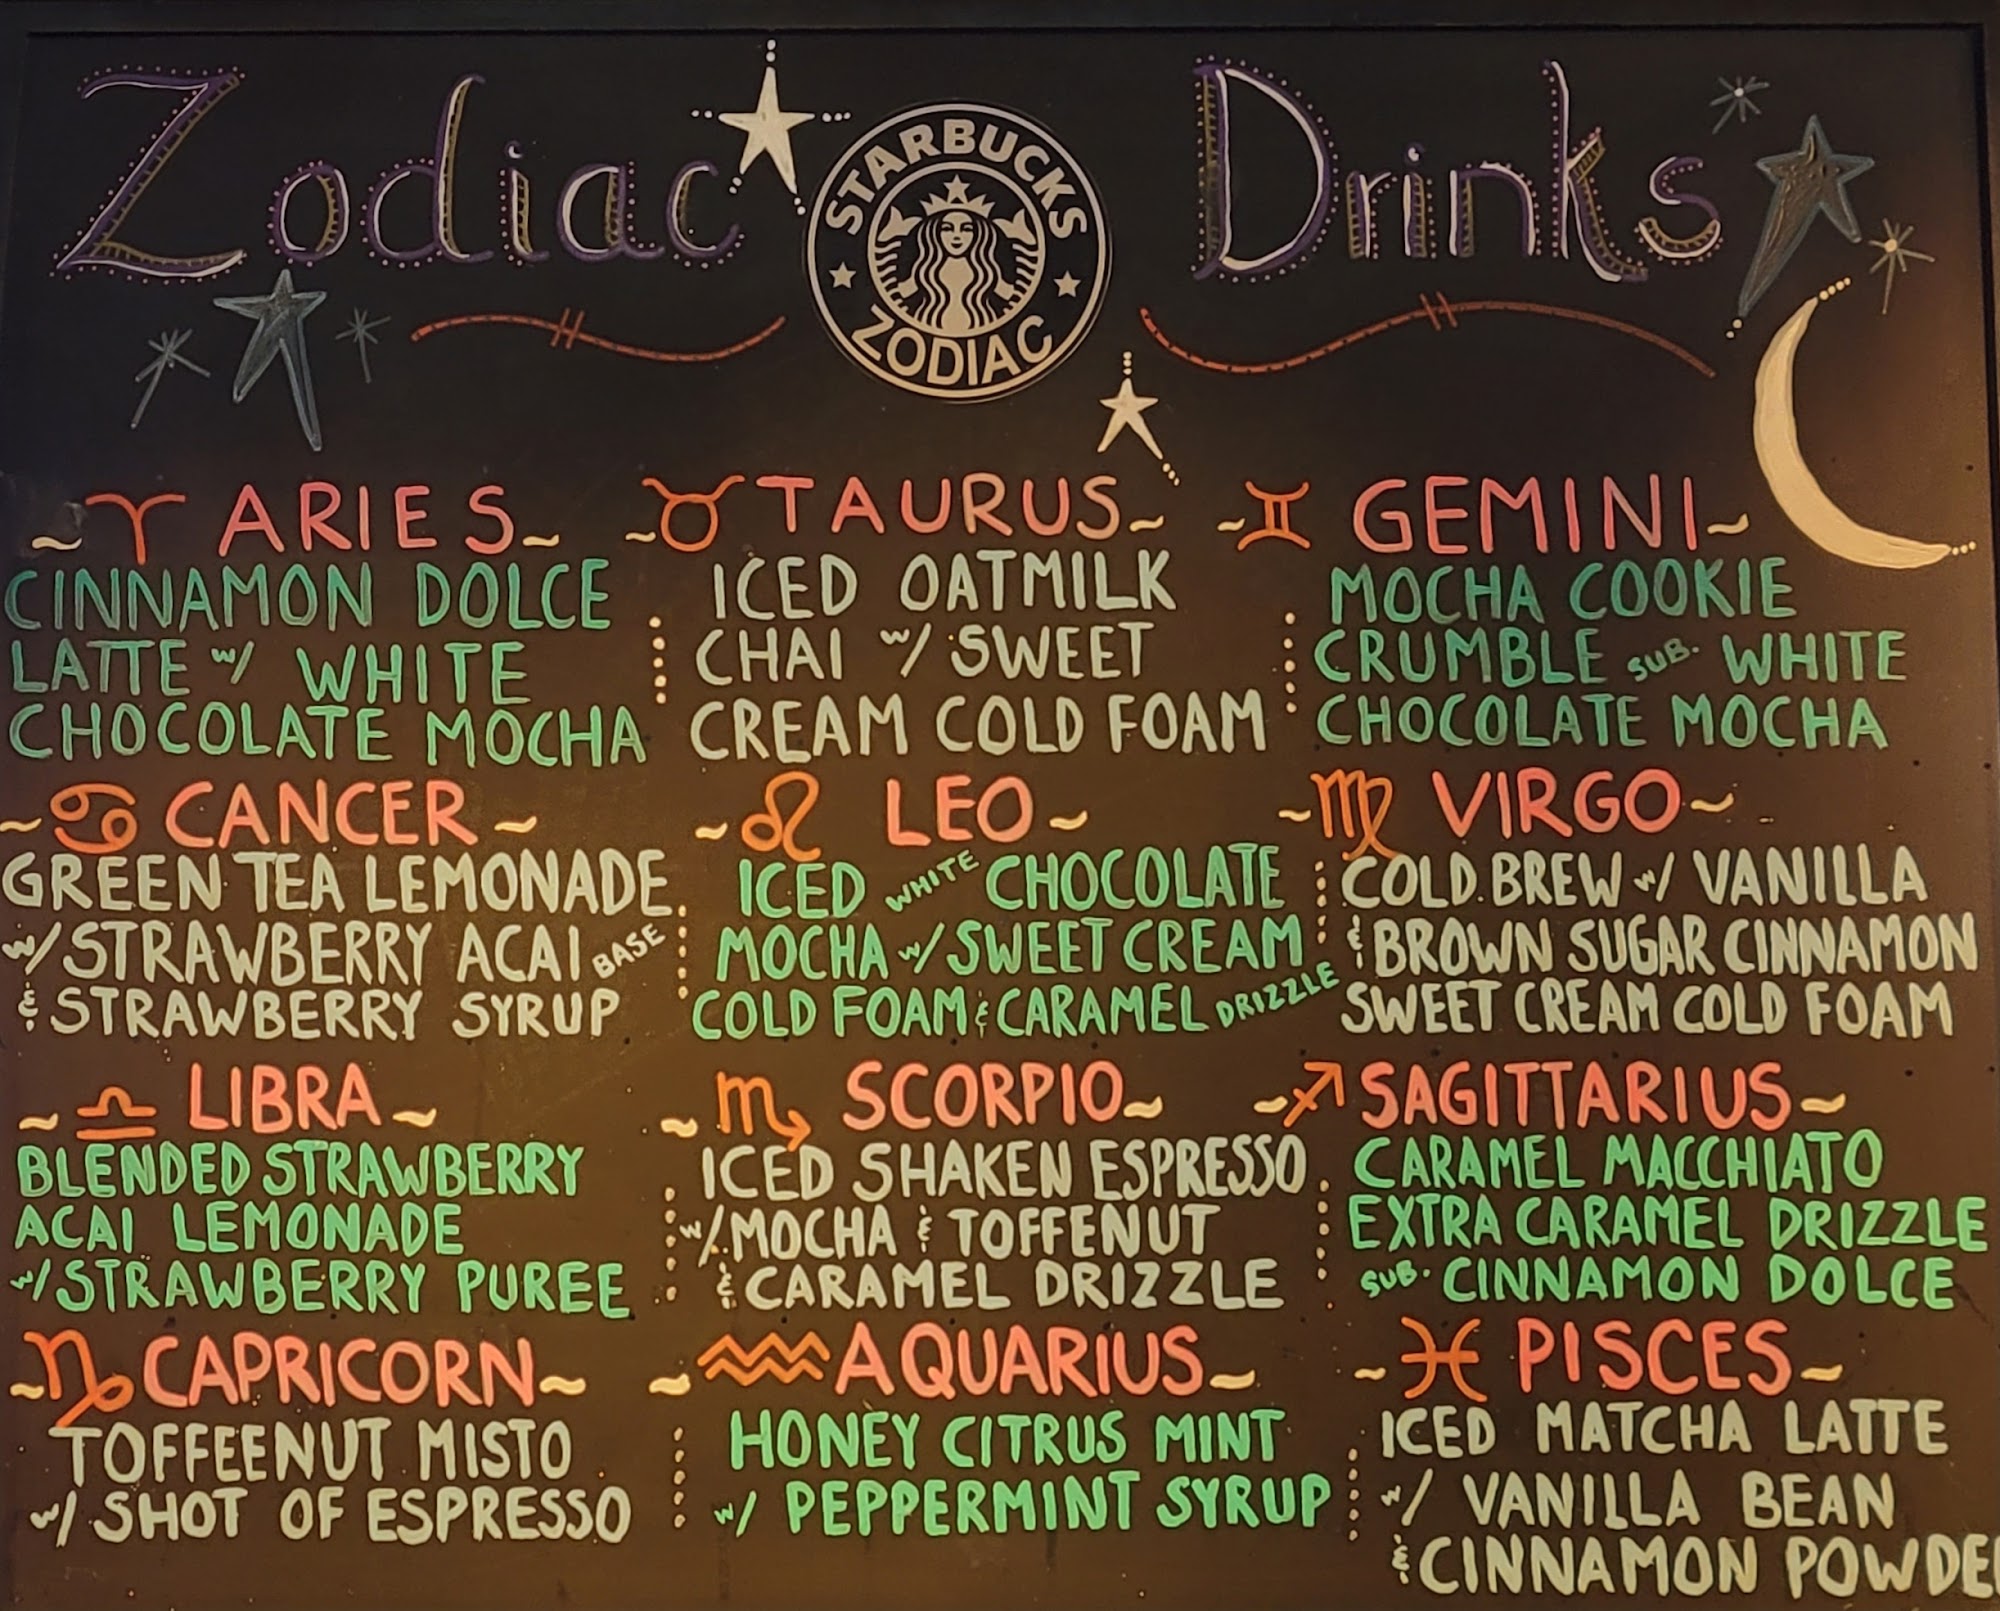 Zodiac Drinks
STARBUCKS
ZODIAC
~ ♈ ARIES ~
CINNAMON DOLCE
LATTE w/ WHITE
CHOCOLATE MOCHA
~ ♉ TAURUS ~
ICED OATMILK
CHAI w/ SWEET
CREAM COLD FOAM
~ ♊ GEMINI ~
MOCHA COOKIE
CRUMBLE SUB. WHITE
CHOCOLATE MOCHA
~ ♋ CANCER ~
GREEN TEA LEMONADE
w/ STRAWBERRY ACAI BASE
& STRAWBERRY SYRUP
~ ♌ LEO ~
ICED WHITE CHOCOLATE
MOCHA w/ SWEET CREAM
COLD FOAM & CARAMEL DRIZZLE
~ ♍ VIRGO ~
COLD BREW w/ VANILLA
& BROWN SUGAR CINNAMON
SWEET CREAM COLD FOAM
~ ♎ LIBRA ~
BLENDED STRAWBERRY
ACAI LEMONADE
w/ STRAWBERRY PUREE
~ ♏ SCORPIO ~
ICED SHAKEN ESPRESSO
w/ MOCHA & TOFFENUT
& CARAMEL DRIZZLE
~ ♐ SAGITTARIUS ~
CARAMEL MACCHIATO
EXTRA CARAMEL DRIZZLE
SUB. CINNAMON DOLCE
~ ♑ CAPRICORN ~
TOFFEENUT MISTO
w/ SHOT OF ESPRESSO
~ ♒ AQUARIUS ~
HONEY CITRUS MINT
w/ PEPPERMINT SYRUP
~ ♓ PISCES ~
ICED MATCHA LATTE
w/ VANILLA BEAN
& CINNAMON POWDE